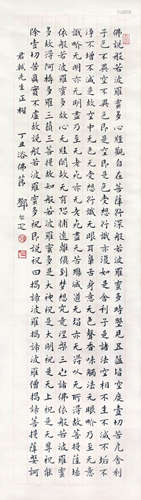 佛說般若波羅蜜多心經觀自在菩薩行深般若波羅蜜多時照見五蘊皆空度壹切苦厄舍利
子色不異空空不異色色即是空空即是色受想行識亦復如是舍利子是諸法空相不生不滅不垢不
淨不增不減是故空中无色无受想行識无眼耳鼻舌身意无色聲香味觸法无眼界乃至无意
識界无无明亦无无明盡乃至无老死亦无老死盡无苦集滅道无智亦无得以无所得故菩提薩埵
依般若波羅蜜多故心无罣礙无罣礙故无有恐怖遠離顛倒夢想究竟涅槃三世諸佛依般若波羅蜜
多故得阿耨多羅三藐三菩提故知般若波羅蜜多是大神祝是大明祝是无上祝是无等等祝能
除壹切苦真實不虛故說般若波羅蜜多祝即說祝曰揭諦揭諦波羅揭諦波羅僧揭諦菩提薩婆訶
先生正
丁丑浴佛